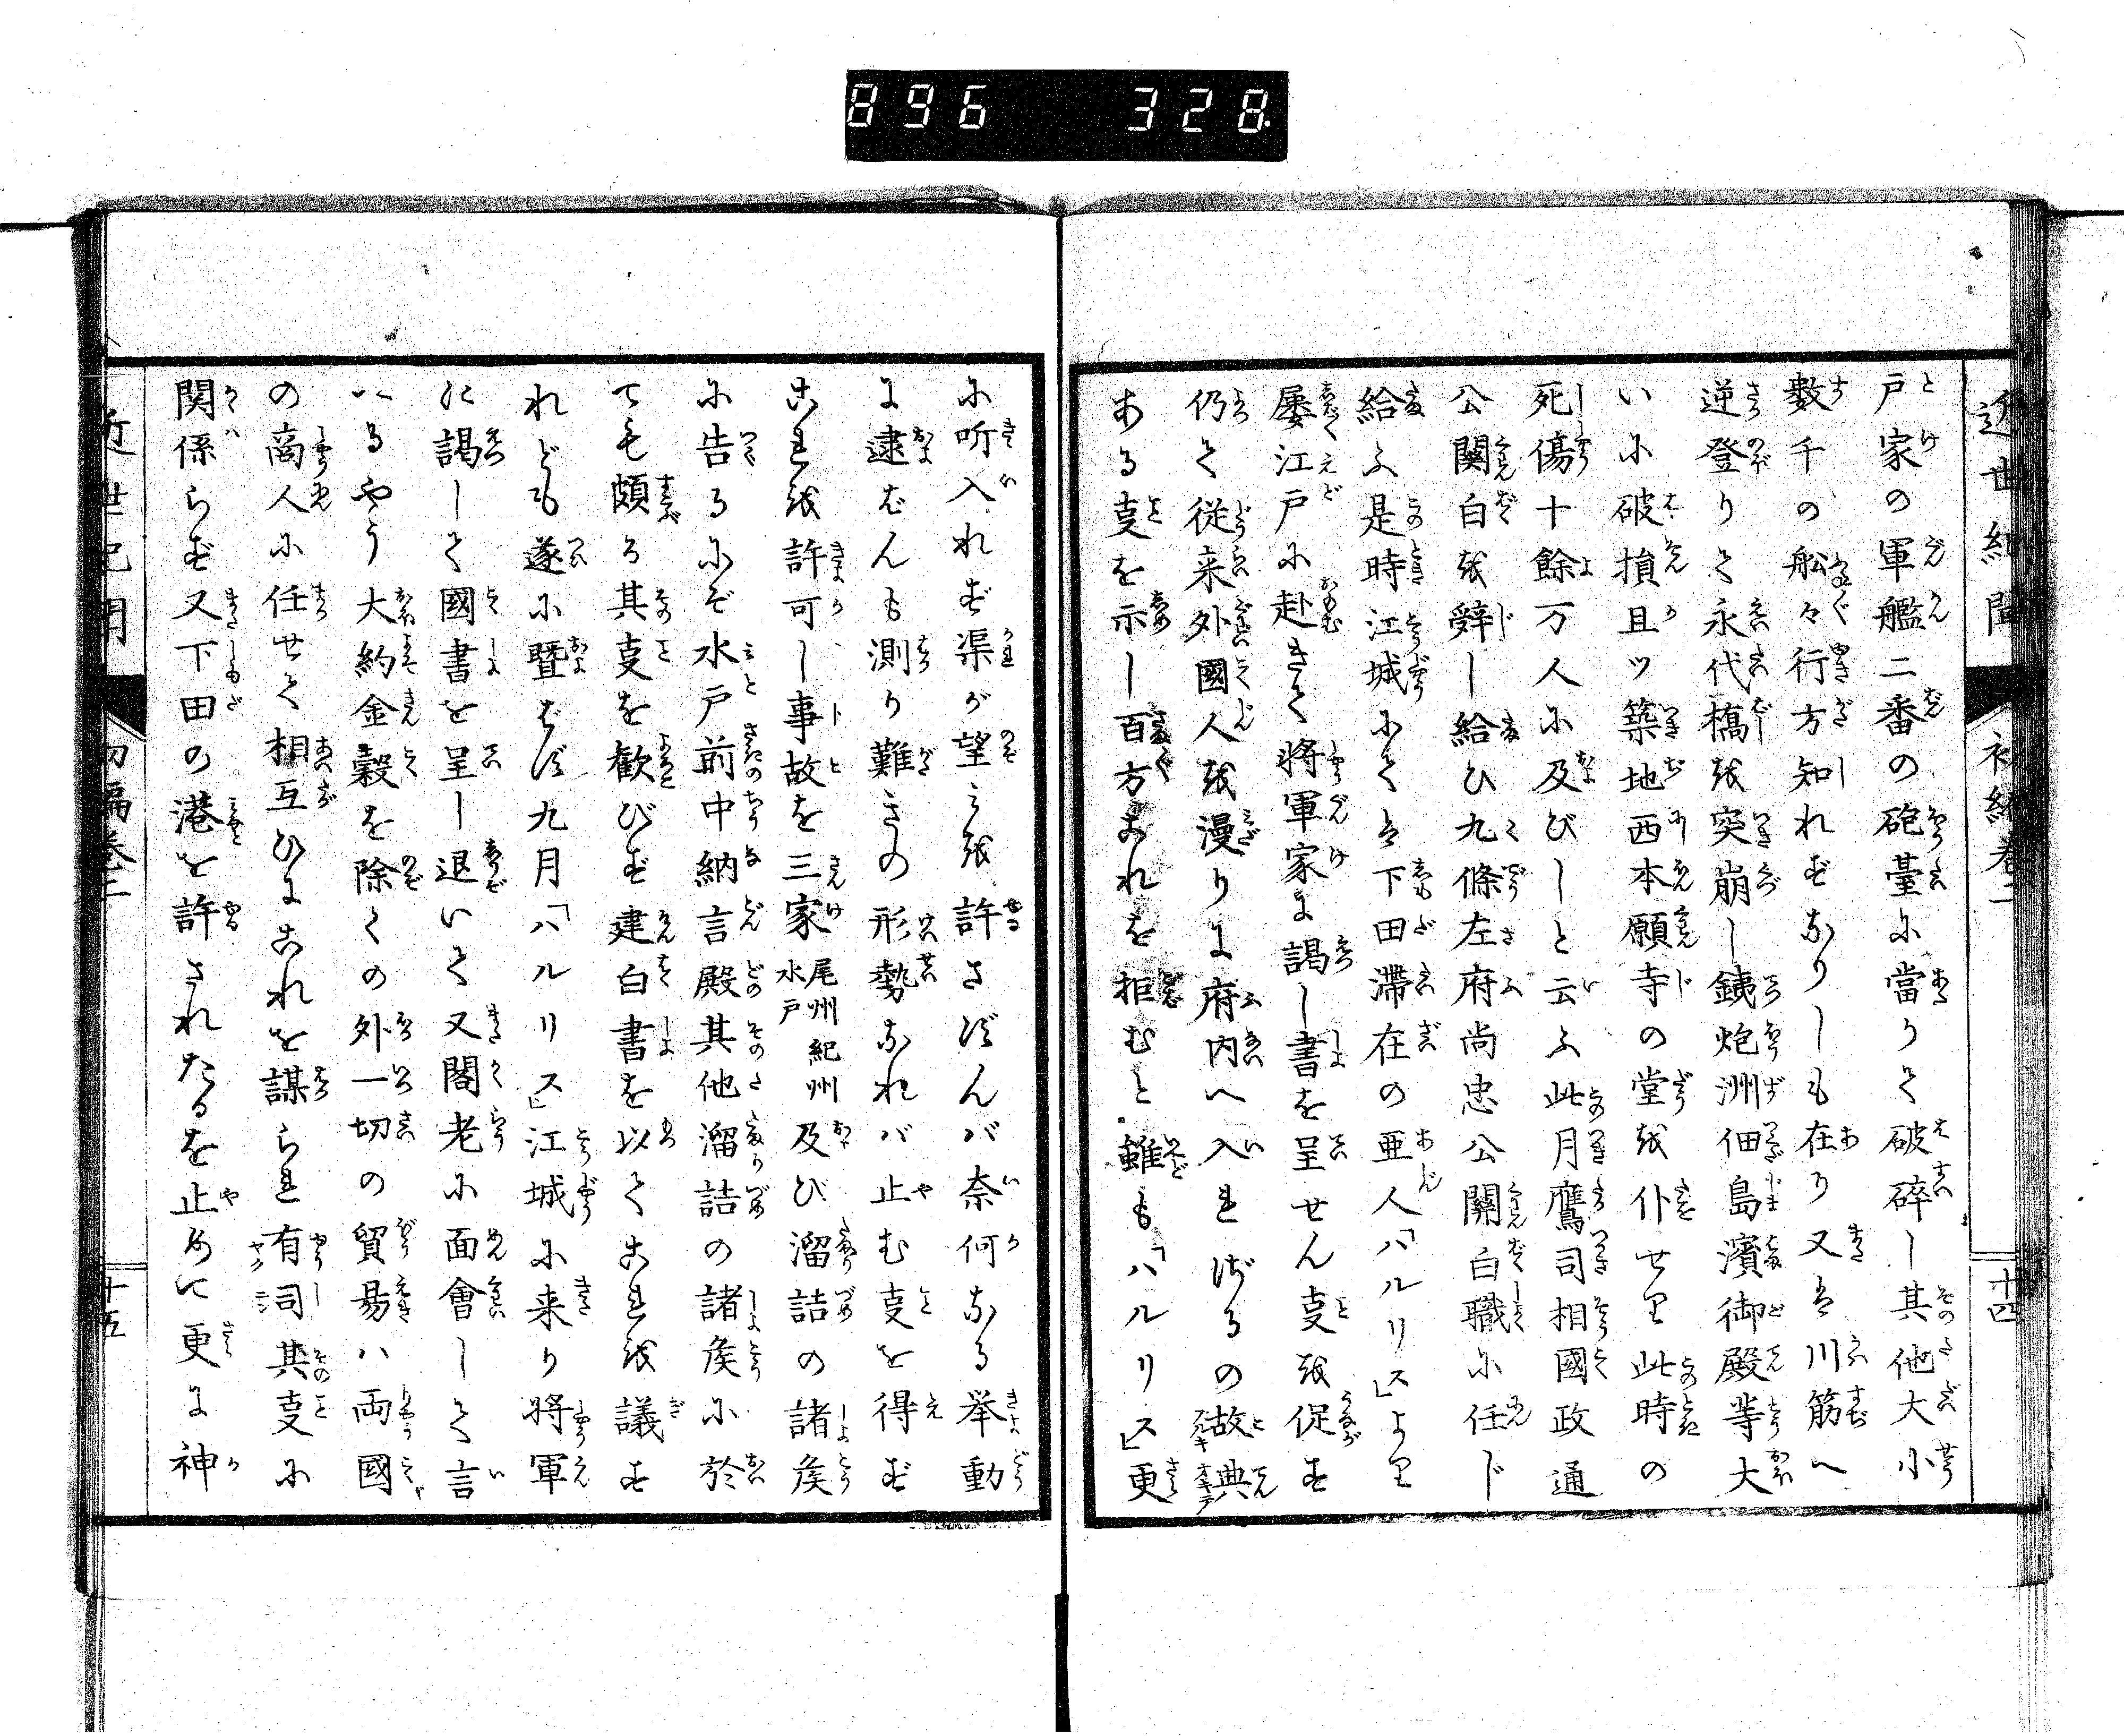 896 328
近世紀聞 初編巻二 十四
戸家の軍艦二番の砲臺に當りて破碎し其他大小
數千の船々行方知れずなりしも在り又は川筋へ
逆登りて永代橋を突崩し銕炮洲佃島濱御殿等大
いに破損且ツ築地西本願寺の堂を仆せり此時の
死傷十餘万人に及びしと云ふ此月鷹司相國政通
公關白を辞し給ひ九條左府尚忠公關白職に任じ
給ふ是時江城にては下田滞在の亜人「ハルリス」より
屡江戸に赴きて將軍家に謁し書を呈せん㕝を促す
仍て従来外國人を漫りに府内へ入れざるの故典
ある㕝を示し百方これを拒むと雖も「ハルリス」更
に听入れず渠が望みを許さずんば奈何なる挙動
に逮ばんも測り難きの形勢なれば止む㕝を得ず
これを許可し事故を三家尾州紀州水戸及び溜詰の諸矦
に告るにぞ水戸前中納言殿其他溜詰の諸矦に於
ても頗る其㕝を歓びず建白書を以てこれを議す
れども遂に暨ばず九月「ハルリス」江城に来り將軍
に謁して國書を呈し退いて又閣老に面會して言
いるやう大約金穀を除くの外一切の貿易ハ両國
の商人に任せて相互ひにこれを謀られ有司其㕝に
関係らず又下田の港を許されたるを止めに更に神
近世紀聞 初編巻二 十五